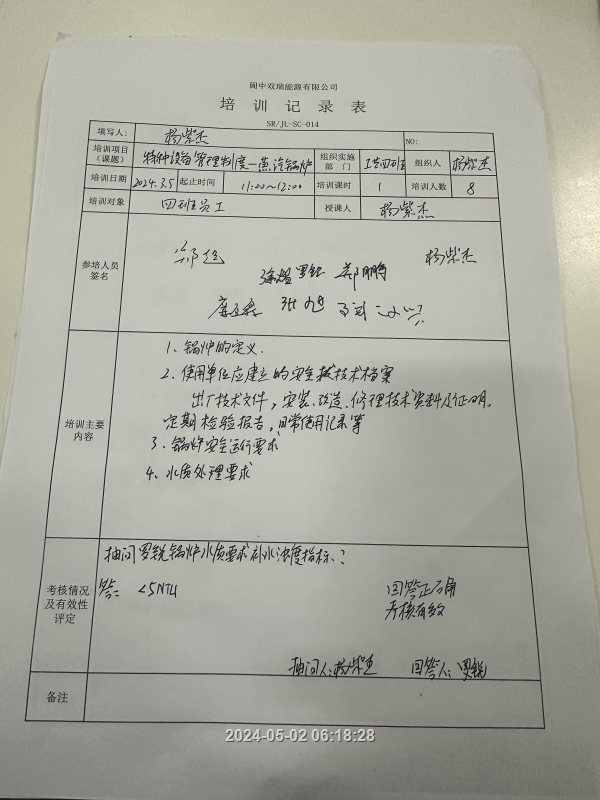 阆中双瑞能源有限公司
培训记录表
SR/JL-SC-014
填写人: 杨紫杰 NO:
培训项目(课题) 特种设备管理制度—蒸汽锅炉 组织实施部门 工艺四班 组织人 杨紫杰
培训日期 2024.3.5 起止时间 11:00~12:00 培训课时 1 培训人数 8
培训对象 四班员工 授课人 杨紫杰
参培人员签名
杨紫杰
罗锐 郑鹏
张旭
培训主要内容
1、锅炉的定义.
2、使用单位应建立的安全技术档案
出厂技术文件,安装、改造、修理技术资料及证明,
定期检验报告,日常使用记录等
3、锅炉安全运行要求
4、水质处理要求
考核情况及有效性评定
抽问罗锐锅炉水质要求补水浊度指标:?
答: <5NTU 回答正确
考核有效
抽问人:杨紫杰 回答人:罗锐
备注
2024-05-02 06:18:28